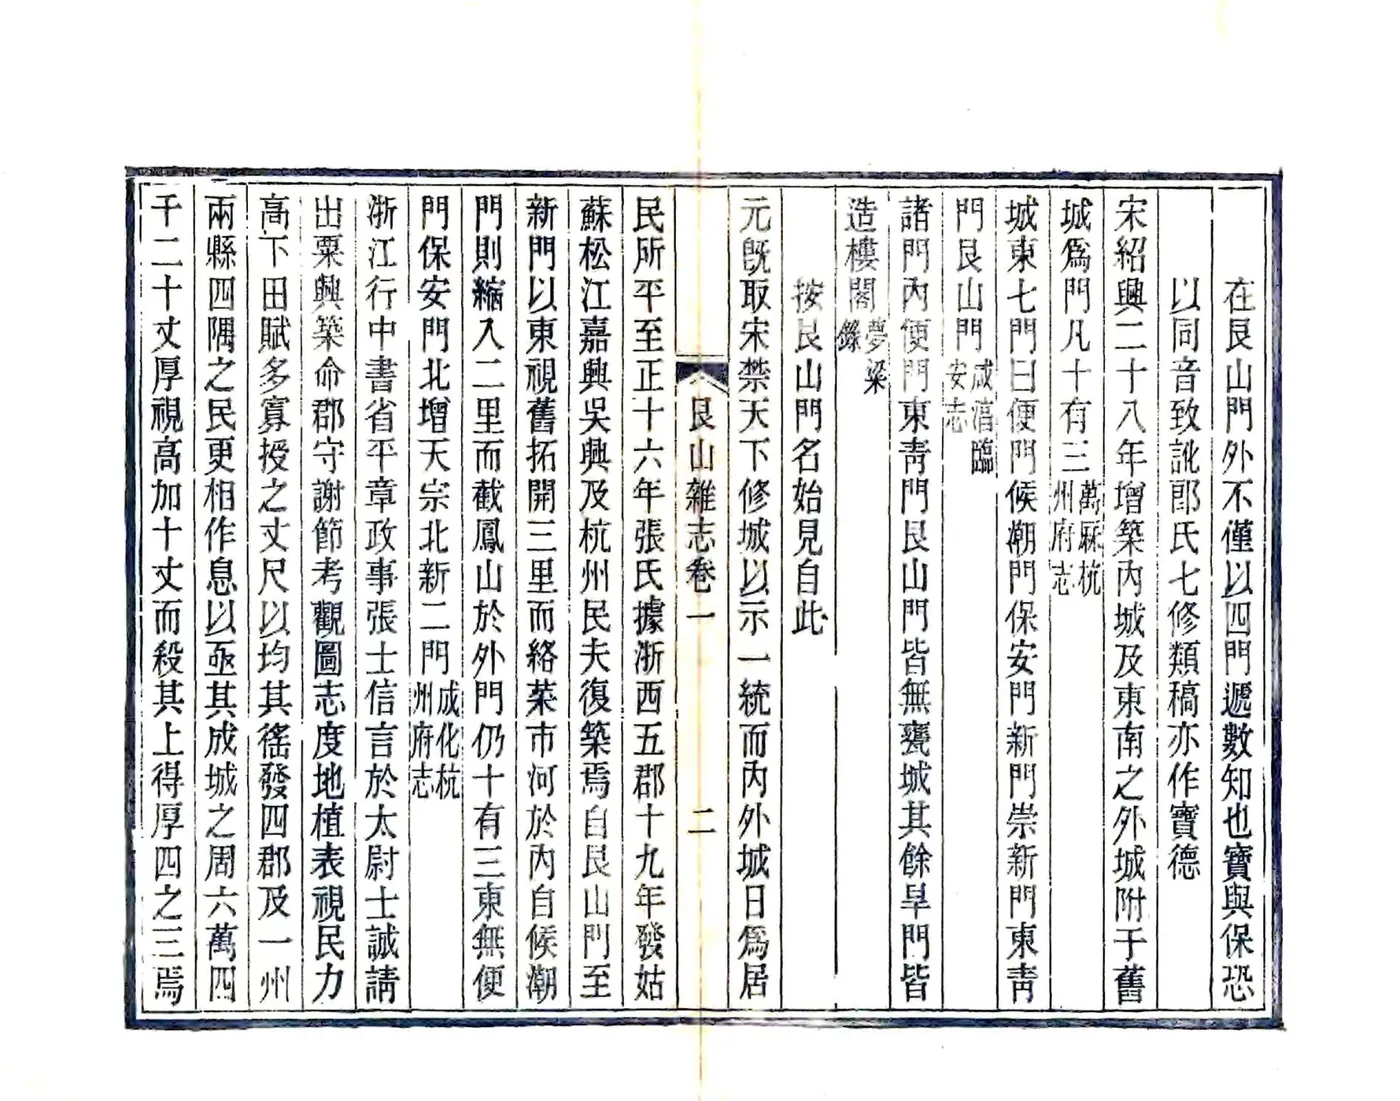 在艮山門外不僅以四門遞數知也寶與保恐
以同音致訛郎氏七修類稿亦作寶德
宋紹興二十八年增築內城及東南之外城附于舊
城爲門凡十有三萬厤杭州府志
城東七門曰便門候潮門保安門新門崇新門東靑
門艮山門咸淳臨安志
諸門內便門東靑門艮山門皆無甕城其餘旱門皆
造樓閣夢梁錄
按艮山門名始見自此
元旣取宋禁天下修城以示一統而內外城日爲居
艮山雜志卷一 二
民所平至正十六年張氏據浙西五郡十九年發姑
蘇松江嘉興吳興及杭州民夫復築焉自艮山門至
新門以東視舊拓開三里而絡菜市河於內自候潮
門則縮入二里而截鳳山於外門仍十有三東無便
門保安門北增天宗北新二門成化杭州府志
浙江行中書省平章政事張士信言於太尉士誠請
出粟興築命郡守謝節考觀圖志度地植表視民力
高下田賦多寡授之丈尺以均其徭發四郡及一州
兩縣四隅之民更相作息以亟其成城之周六萬四
千二十丈厚視高加十丈而殺其上得厚四之三焉